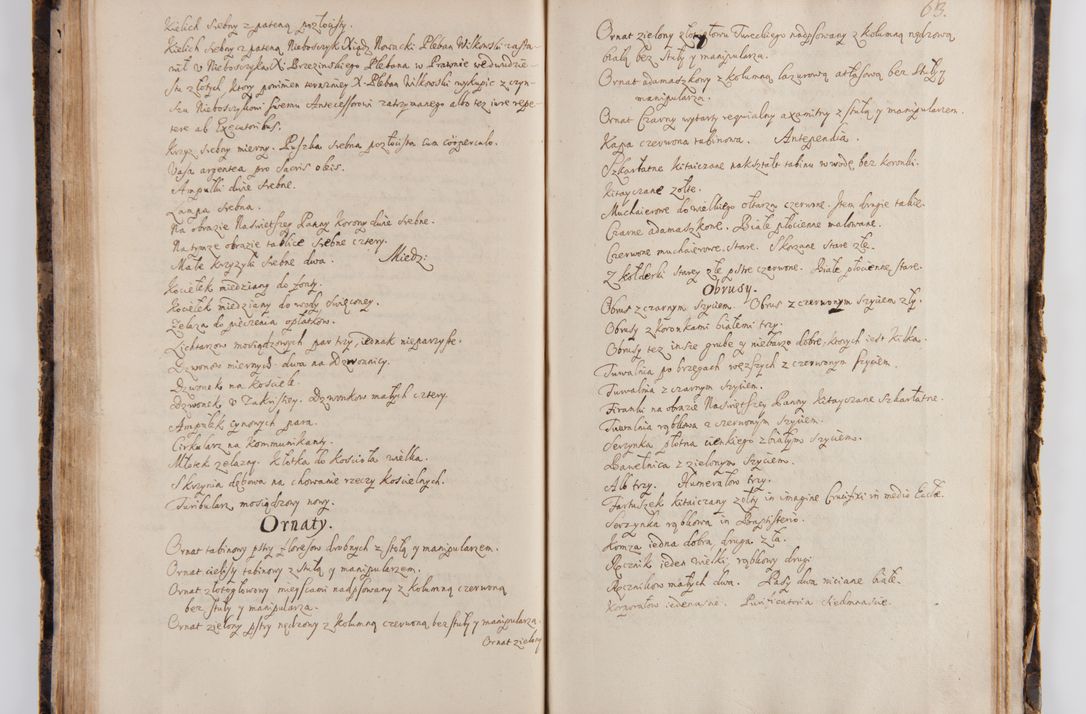 Kielich srebny z pateną pozłoisty.
Kielich srebny z pateną Nieboszczyk Xiądz Nowacki Pleban Wilkowski zasta-
wił v Nieboszczyka X. Brzezinskiego Plebana w Prawnie we dwudzie-
stu złotych ktory powinien teraznieyszy X. Pleban Wilkowski wykupic z czyn-
szu Nieboszczykowi swemu Antecessorowi zatrzymanego albo tez iure repe-
tere ab Executoribus.
Krzyz srebny mierny. Puszka srebna pozłoista cum cooperculo.
Vasa argentea pro Sacris oleis.
Ampułki dwie srebne.
Lampa srebna.
Na obrazie Naswietszey Panny Korony dwie srebne.
Na tymze obrazie tablice srebne cztery.
Małe krzyzyki srebne dwa. Miedz:
Kociełek miedziany do fonty.
Kociełek miedziany do wody swięconey.
Zelaza do pieczenia opłatkow.
Lichtarzow mosiądzowych par trzy, iednak nieparzyste.
Dzwonow miernych dwa na Dzwonnicy.
Dzwonek na kosciele.
Dzwonek v Zakrystiey. Dzwonkow małych cztery.
Ampułek cynowych para.
Cirkularz na kommunikanty.
Młotek zelazny. Kłotka do kosciola wielka.
Skrzynia dębowa na chowanie rzeczy koscielnych.
Turibularz mosiądzowy nowy.
Ornaty.
Ornat tabinowy pstry z floresow drobnych z stułą y manipularzem.
Ornat cielisty tabinowy z stułą y manipularzem.
Ornat złotogłowowy mieyscami nadpsowany z kolumną czerwoną
bez stuły y manipularza.
Ornat zielony pstry nędzowy z kolumną czerwoną bez stuły y manipularza.
Ornat zielony
63.
Ornat zielony złotogłowu Tureckiego nadpsowany z kolumną nędzową
białą bez stuły y manipularza.
Ornat adamaszkowy z kolumną lazurową atłasową bez stuły y
manipularza.
Ornat czarny wytarty requialny axamitny z stułą y manipularzem.
Kapa czerwona tabinowa. Antependia.
Szkarłatne kitaiczane nakształt tabinu w wodę bez koronki.
Kitayczane zołte.
Muchaierowe do wielkiego ołtarza czerwone. Item drugie takie.
Czarne adamaszkowe. Białe płocienne malowane.
Czerwone muchaierowe stare. Skorzane stare złe.
Z kołderki starey złe pstre czerwone. Białe płocienne stare.
Obrusy.
Obrus z czarnym szyciem. Obrus z czerwonym szyciem zły.
Obrusy z koronkami białemi trzy.
Obrusy tez insze grube y niebarzo dobre, ktorych iest kilka.
Tuwalnia po brzegach węzszych z czerwonym szyciem.
Tuwalnia z czarnym szyciem.
Firanki na obrazie Naswiętszey Panny kitayczane szkarłatne.
Tuwalnia rąbkowa z czerwonym szyciem.
Serzynka płotna cienkiego z białym szyciem.
Banełnica z zielonym szyciem.
Alb trzy. Humerałow trzy.
Fartuszek kitaiczany zołty in imagine Crucifixi in medio Eccłae.
Serzynka rąbkowa in Baptisterio.
Komza iedna dobra, druga zła.
Ręcznik ieden wielki, rąbkowy drugi.
Ręcznikow małych dwa. Pasy dwa niciane białe.
Korporałow iedenascie. Purificatoria siedmnascie.